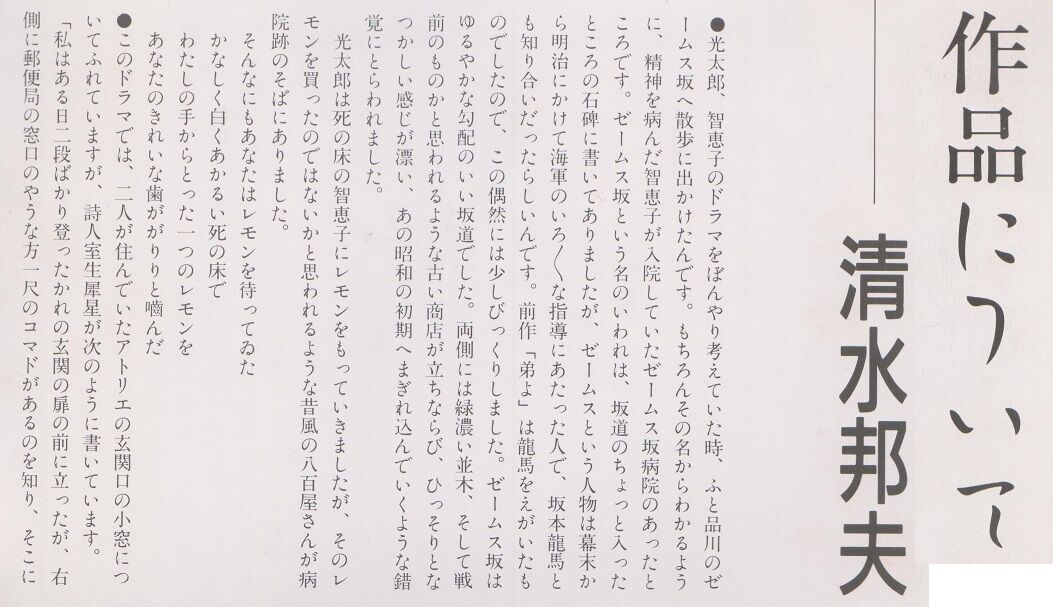 作品について
清水邦夫
●光太郎、智恵子のドラマをぼんやり考えていた時、ふと品川のゼ
ームス坂へ散歩に出かけたんです。もちろんその名からわかるよう
に、精神を病んだ智恵子が入院していたゼームス坂病院のあったと
ころです。ゼームス坂という名のいわれは、坂道のちょっと入った
ところの石碑に書いてありましたが、ゼームスという人物は幕末か
ら明治にかけて海軍のいろ〱な指導にあたった人で、坂本龍馬と
も知り合いだったらしいんです。前作「弟よ」は龍馬をえがいたも
のでしたので、この偶然には少しびっくりしました。ゼームス坂は
ゆるやかな勾配のいい坂道でした。両側には緑濃い並木、そして戦
前のものかと思われるような古い商店が立ちならび、ひっそりとな
つかしい感じが漂い、あの昭和の初期へまぎれ込んでいくような錯
覚にとらわれました。
光太郎は死の床の智恵子にレモンをもっていきましたが、そのレ
モンを買ったのではないかと思われるような昔風の八百屋さんが病
院跡のそばにありました。
そんなにもあなたはレモンを待ってゐた
かなしく白くあかるい死の床で
わたしの手からとった一つのレモンを
あなたのきれいな歯ががりりと嚙んだ
●このドラマでは、二人が住んでいたアトリエの玄関口の小窓につ
いてふれていますが、詩人室生犀星が次のように書いています。
「私はある日二段ばかり登ったかれの玄関の扉の前に立ったが、右
側に郵便局の窓口のやうな方一尺のコマドがあるのを知り、そこに